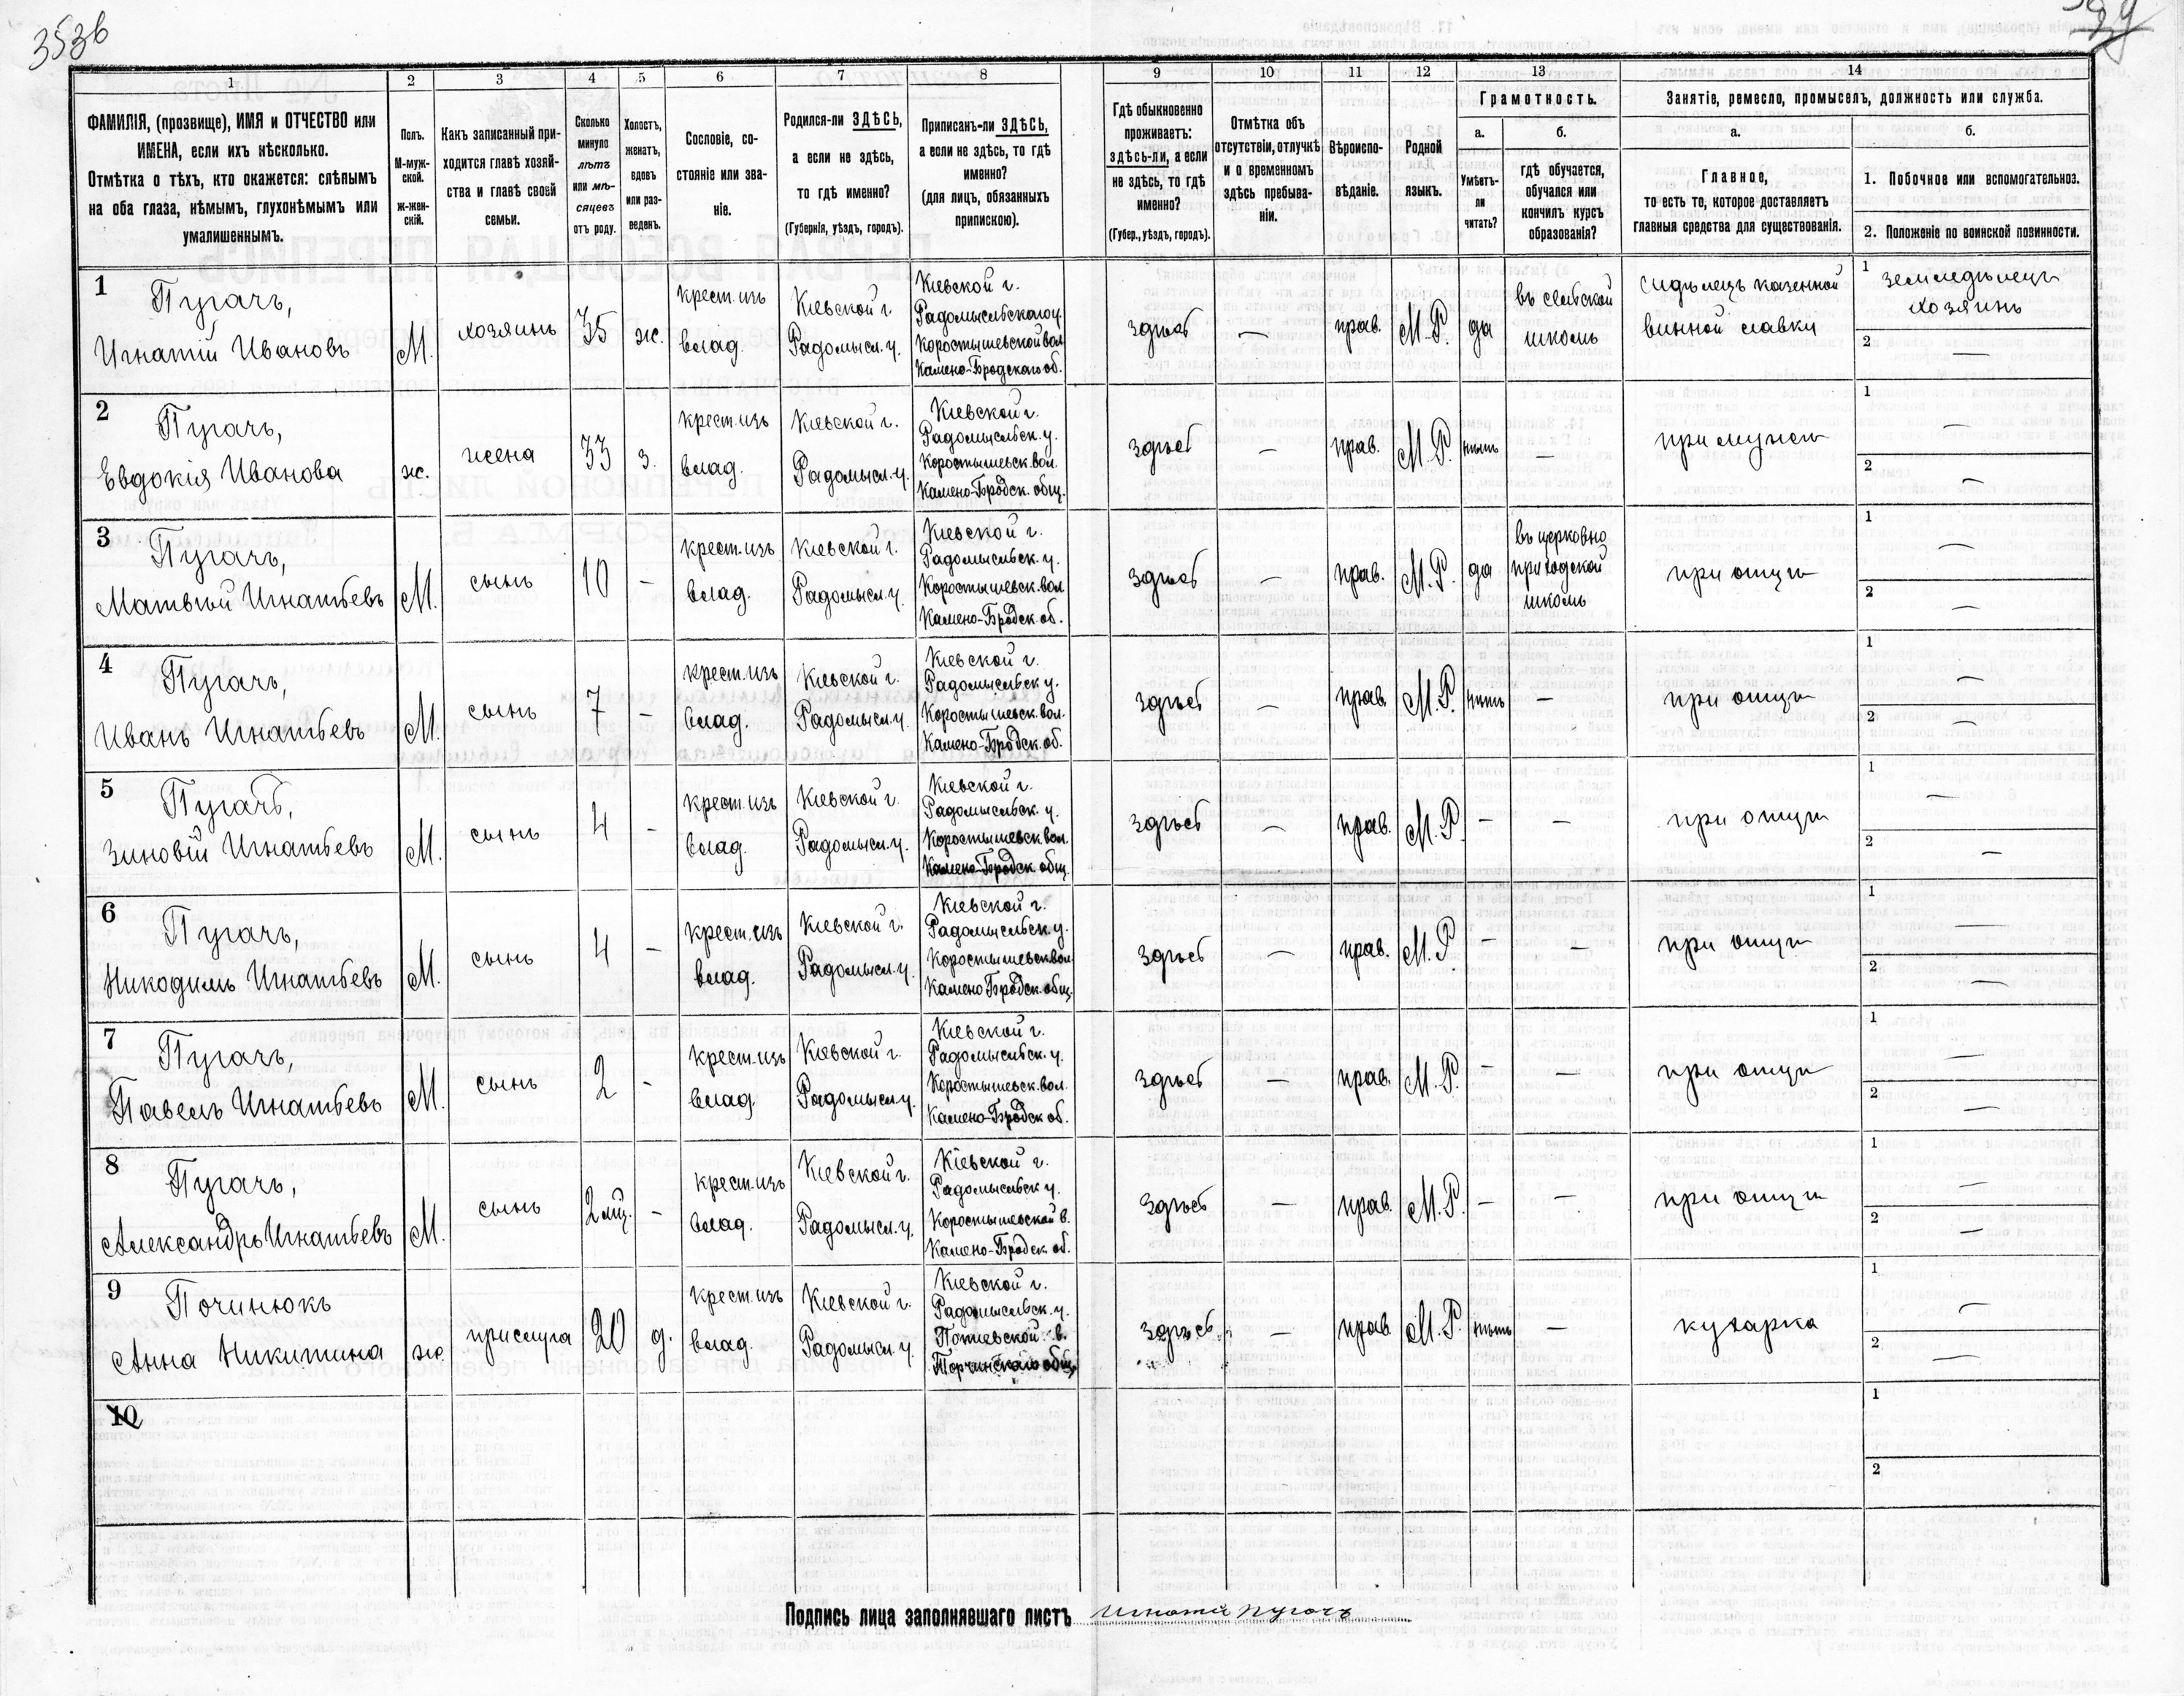 353б
1 2 3 4 5 6 7 8 9 10 11 12 13 14
ФАМИЛІЯ, (прозвище), ИМЯ и ОТЧЕСТВО или
ИМЕНА, если ихъ нѣсколько.
Отмѣтка о тѣхъ, кто окажется: слѣпымъ
на оба глаза, нѣмымъ, глухонѣмымъ или
умалишеннымъ.
Полъ.
М-муж-
ской.
ж-жен-
скій.
Какъ записанный при-
ходится главѣ хозяй-
ства и главѣ своей
семьи.
Сколько
минуло
лѣтъ
или мѣ-
сяцевъ
отъ роду.
Холостъ,
женатъ,
вдовъ
или раз-
веденъ.
Сословіе, со-
стояніе или зва-
ніе.
Родился-ли ЗДѢСЬ,
а если не здѣсь,
то гдѣ именно?
(Губернія, уѣздъ, городъ).
Приписанъ-ли ЗДѢСЬ,
а если не здѣсь, то гдѣ
именно?
(для лицъ, обязанныхъ
припискою).
Гдѣ обыкновенно
проживаетъ:
здѣсь-ли, а если
не здѣсь, то гдѣ
именно?
(Губер., уѣздъ, городъ).
Отмѣтка объ
отсутствіи, отлучкѣ
и о временномъ
здѣсь пребыва-
ніи.
Вѣроиспо-
вѣданіе.
Родной
языкъ.
Грамотность.
а.
Умѣетъ-
ли
читать?
б.
гдѣ обучается,
обучался или
кончилъ курсъ
образованія?
Занятіе, ремесло, промыселъ, должность или служба.
а.
Главное,
то есть то, которое доставляетъ
главныя средства для существованія.
б.
1. Побочное или вспомогательное.
2. Положеніе по воинской повинности.
1
Пугачъ,
Игнатій Ивановъ
М.
хозяинъ
35
ж.
крест. изъ
влад.
Кіевской г.
Радомысл. у.
Кіевской г.
Радомысльскаго у.
Коростышевской вол.
Камено-Бродскаго об.
здѣсь
—
прав.
М.Р.
да
въ сельской
школѣ
Сидѣлецъ казенной
винной лавки
1 земледѣлецъ
хозяинъ
2 —
2
Пугачъ,
Евдокія Иванова
ж.
жена
33
з.
крест. изъ
влад.
Кіевской г.
Радомысл. у.
Кіевской г.
Радомысльск. у.
Коростышевск. вол.
Камено-Бродск. общ.
здѣсь
—
прав.
М.Р.
нѣтъ
—
при мужѣ
1 —
2 —
3
Пугачъ,
Матвѣй Игнатьевъ
М.
сынъ
10
-
крест. изъ
влад.
Кіевской г.
Радомысл. у.
Кіевской г.
Радомысльск. у.
Коростышевск. вол.
Камено-Бродск. об.
здѣсь
—
прав.
М.Р.
да
въ церковно
приходской
школѣ
при отцѣ
1 —
2 —
4
Пугачъ,
Иванъ Игнатьевъ
М.
сынъ
7
-
крест. изъ
влад.
Кіевской г.
Радомысл. у.
Кіевской г.
Радомысльск у.
Коростышевск. вол.
Камено-Бродск. об.
здѣсь
—
прав.
М.Р.
нѣтъ
—
при отцѣ
1 —
2 —
5
Пугачъ,
Зиновій Игнатьевъ
М.
сынъ
4
-
крест. изъ
влад.
Кіевской г.
Радомысл. у.
Кіевской г.
Радомысльск. у.
Коростышевск. вол.
Камено-Бродск. общ.
здѣсь
—
прав.
М.Р
-
—
при отцѣ
1 —
2 —
6
Пугачъ,
Никодимъ Игнатьевъ
М.
сынъ
4
-
крест. изъ
влад.
Кіевской г.
Радомысл. у.
Кіевской г.
Радомысльск у.
Коростышевск вол
Камено Бродск. общ.
здѣсь
—
прав.
М.Р.
-
—
при отцѣ
1 —
2 —
7
Пугачъ,
Павелъ Игнатьевъ
М.
сынъ
2
-
крест. изъ
влад.
Кіевской г.
Радомысл. у.
Кіевской г.
Радомысльск. у.
Коростышевск. вол.
Камено-Бродск об.
здѣсь
—
прав.
М.Р.
-
—
при отцѣ
1 —
2 —
8
Пугачъ,
Александръ Игнатьевъ
М.
сынъ
2 мц.
-
крест. изъ
влад.
Кіевской г.
Радомысл. у.
Кіевской г.
Радомысльск у.
Коростышевской в.
Камено-Бродск. об.
здѣсь
—
прав.
М.Р.
-
—
при отцѣ
1 —
2 —
9
Починюкъ
Анна Никитина
ж.
прислуга
20
д.
крест. изъ
влад.
Кіевской г.
Радомысл. у.
Кіевской г.
Радомысльск. у.
Потіевской в.
Торчинскаго общ.
здѣсь
—
прав.
М.Р.
нѣтъ
—
кухарка
1 —
2 —
10
1
2
Подпись лица заполнявшаго листъ Игнатій Пугачъ